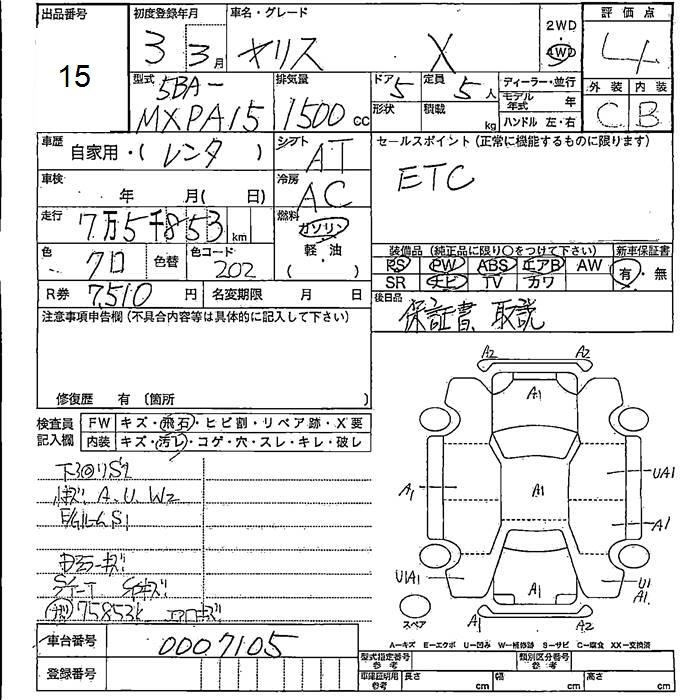 出品番号 初度登録年月 車名・グレード 評価点
15 3 3月 ヤリス X 2WD 4WD 4
型式 排気量 ドア 定員 ディーラー・並行 外装 内装
5BA- 5 5人 モデル年式 年 C B
MXPA15 1500cc 形状 積載 kg ハンドル 左・右
車歴 自家用・(レンタ) シフト AT セールスポイント (正常に機能するものに限ります)
車検 年 月( 日) 冷房 AC ETC
走行 7万5千853km 燃料 ガソリン
軽・油
( )
色 クロ 色替 色コード 202
装備品 (純正品に限り○をつけて下さい) 新車保証書
PS PW ABS エアB AW 有・無
SR ナビ TV カワ
R券 7,510円 名変期限 月 日
後日品 保証書 取説
注意事項申告欄 (不具合内容等は具体的に記入して下さい)
修復歴 有 〔箇所 〕
検査員記入欄 FW キズ・飛石・ヒビ割・リペア跡・X要
内装 キズ・汚レ・コゲ・穴・スレ・キレ・破レ
A2 A2
A1
A1 A1 UA1
A1
U1A1 A1 U1
A1
A1 A2
スペア
A, U, W2
S1
75853k
車台番号 0007105
登録番号
A—キズ E—エクボ U—凹み W—補修跡 S—サビ C—腐食 XX—交換済
型式指定番号 参考 類別区分番号 参考
車庫証明用 参考 長さ cm 幅 cm 高さ cm